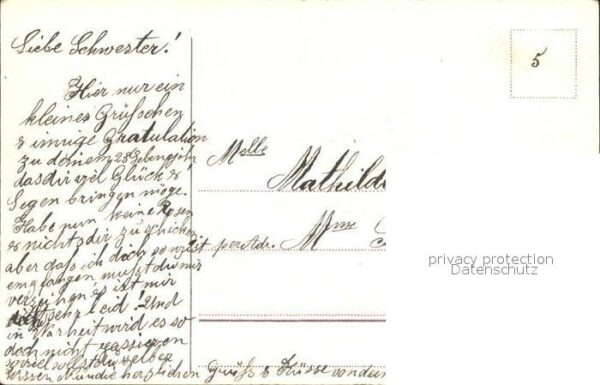 Liebe Schwester!
Hier nur ein
kleines Grüßchen
& innige Gratulation
zu deinem 23 Lebensjahr
das dir viel Glück &
Segen bringen möge.
Habe nun keine Rosen
& nichts dir zu schicken
aber daß ich dich so
empfangen mußt du mir
verzeihen es ist mir
sehr leid! Und
in Wahrheit wird es so
doch nicht passieren
soviel sollst du selber
wissen die herzlichen Grüße & Küsse von
5
Melle
Mathild
per Adr. Mme
privacy protection
Datenschutz